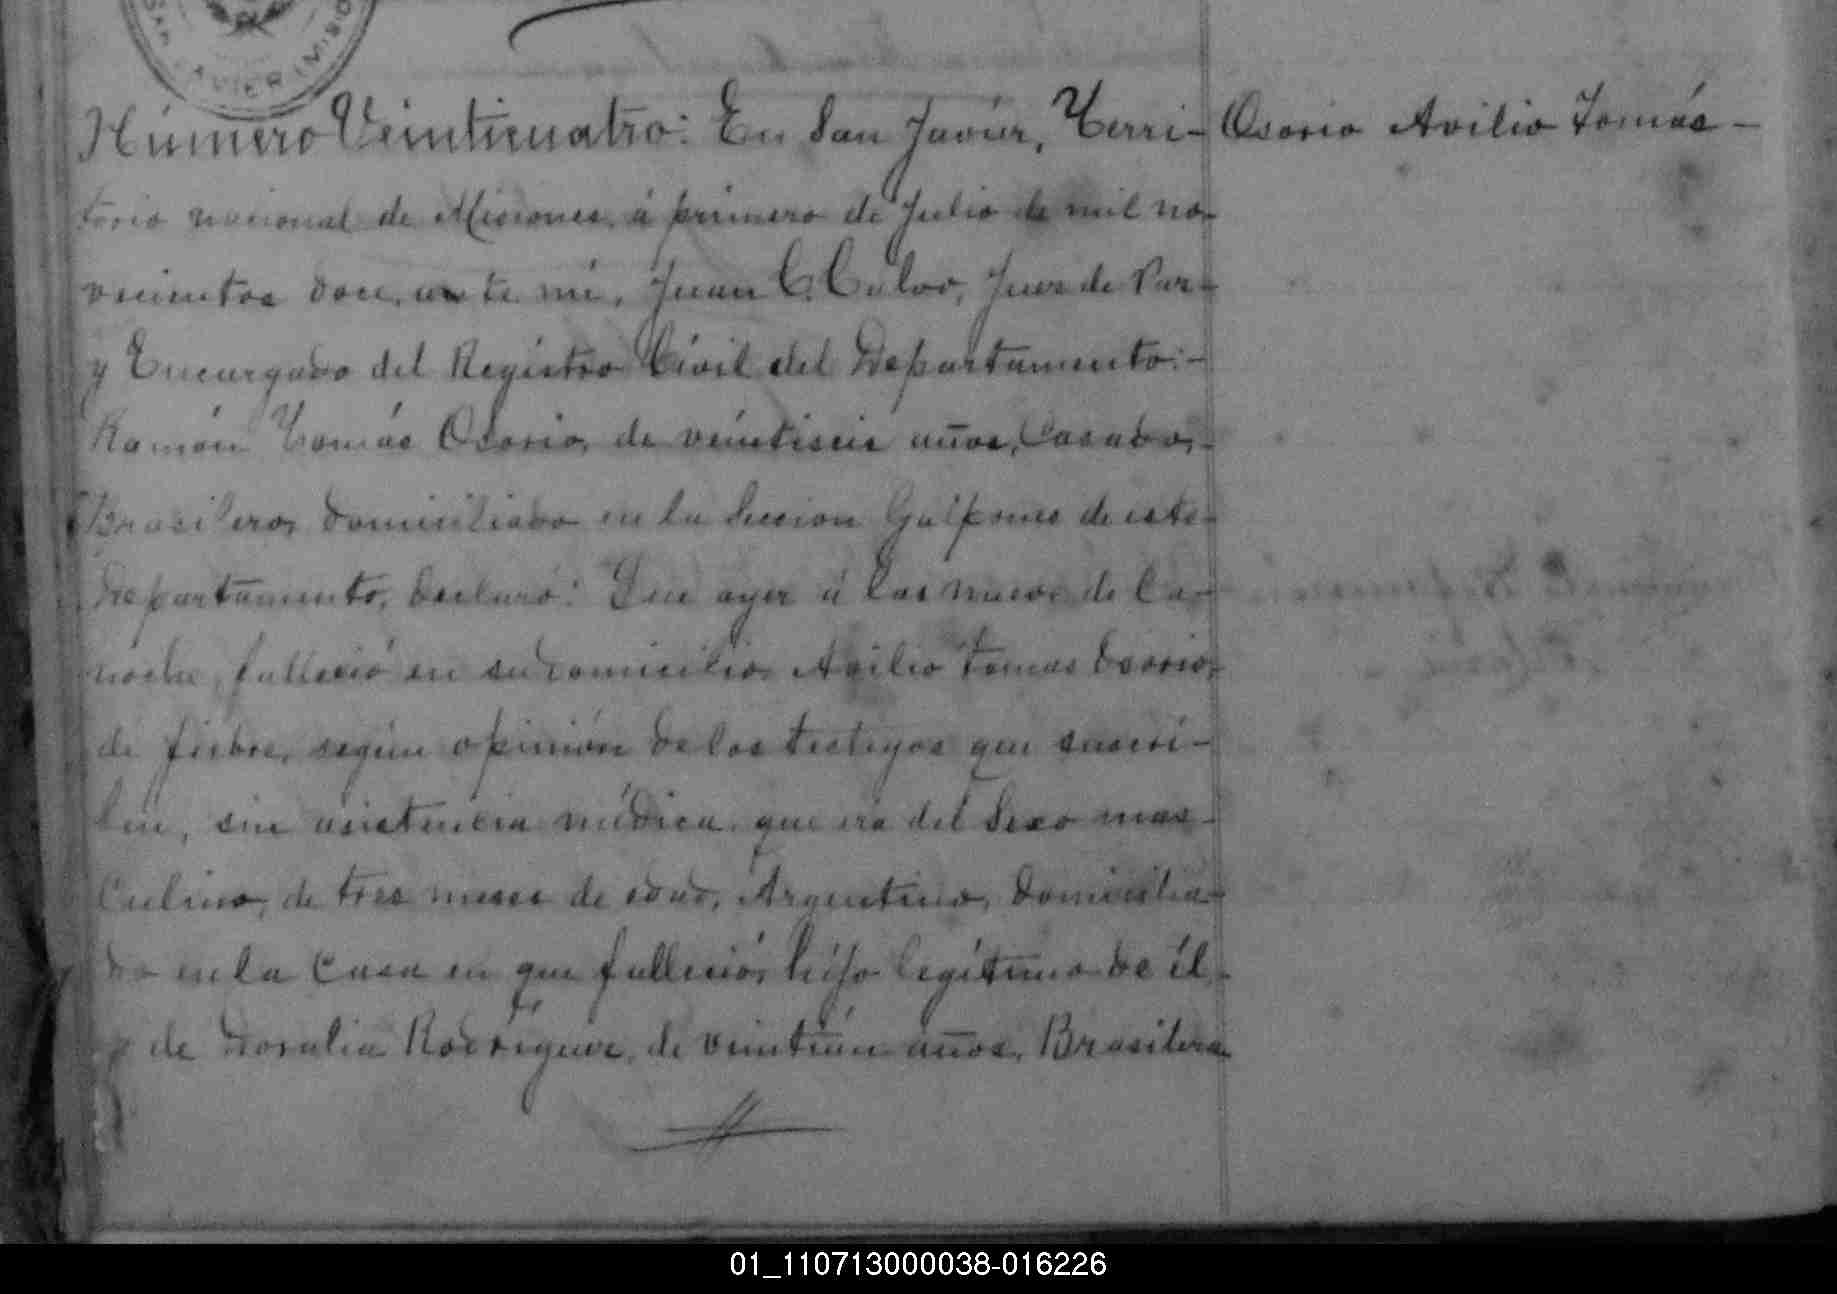 SAN JAVIER (MISIO
Número Veinticuatro: En San Javier, Terri-
Osorio Avilio Tomás-
torio nacional de Misiones, á primero de Julio de mil no-
vecientos doce, ante mi, Juan C. Calvo, Juez de Paz-
y Encargado del Registro Civil del Departamento:-
Ramón Tomás Osorio, de veintiseis años, Casado,-
Brasilero, domiciliado en la Seccion Galpones de este-
Departamento, declaró: Que ayer á las nueve de la-
noche, falleció en su domicilio, Avilio Tomas Osorio,-
de fiebre, según opinión de los testigos que suscri-
ben, sin asistencia médica, que era del Sexo mas-
culino, de tres meses de edad, Argentino, domicilia-
do en la Casa en que falleció, hijo legítimo de él,-
y de Rosalia Rodríguez, de veintiún años, Brasilera
01_110713000038-016226